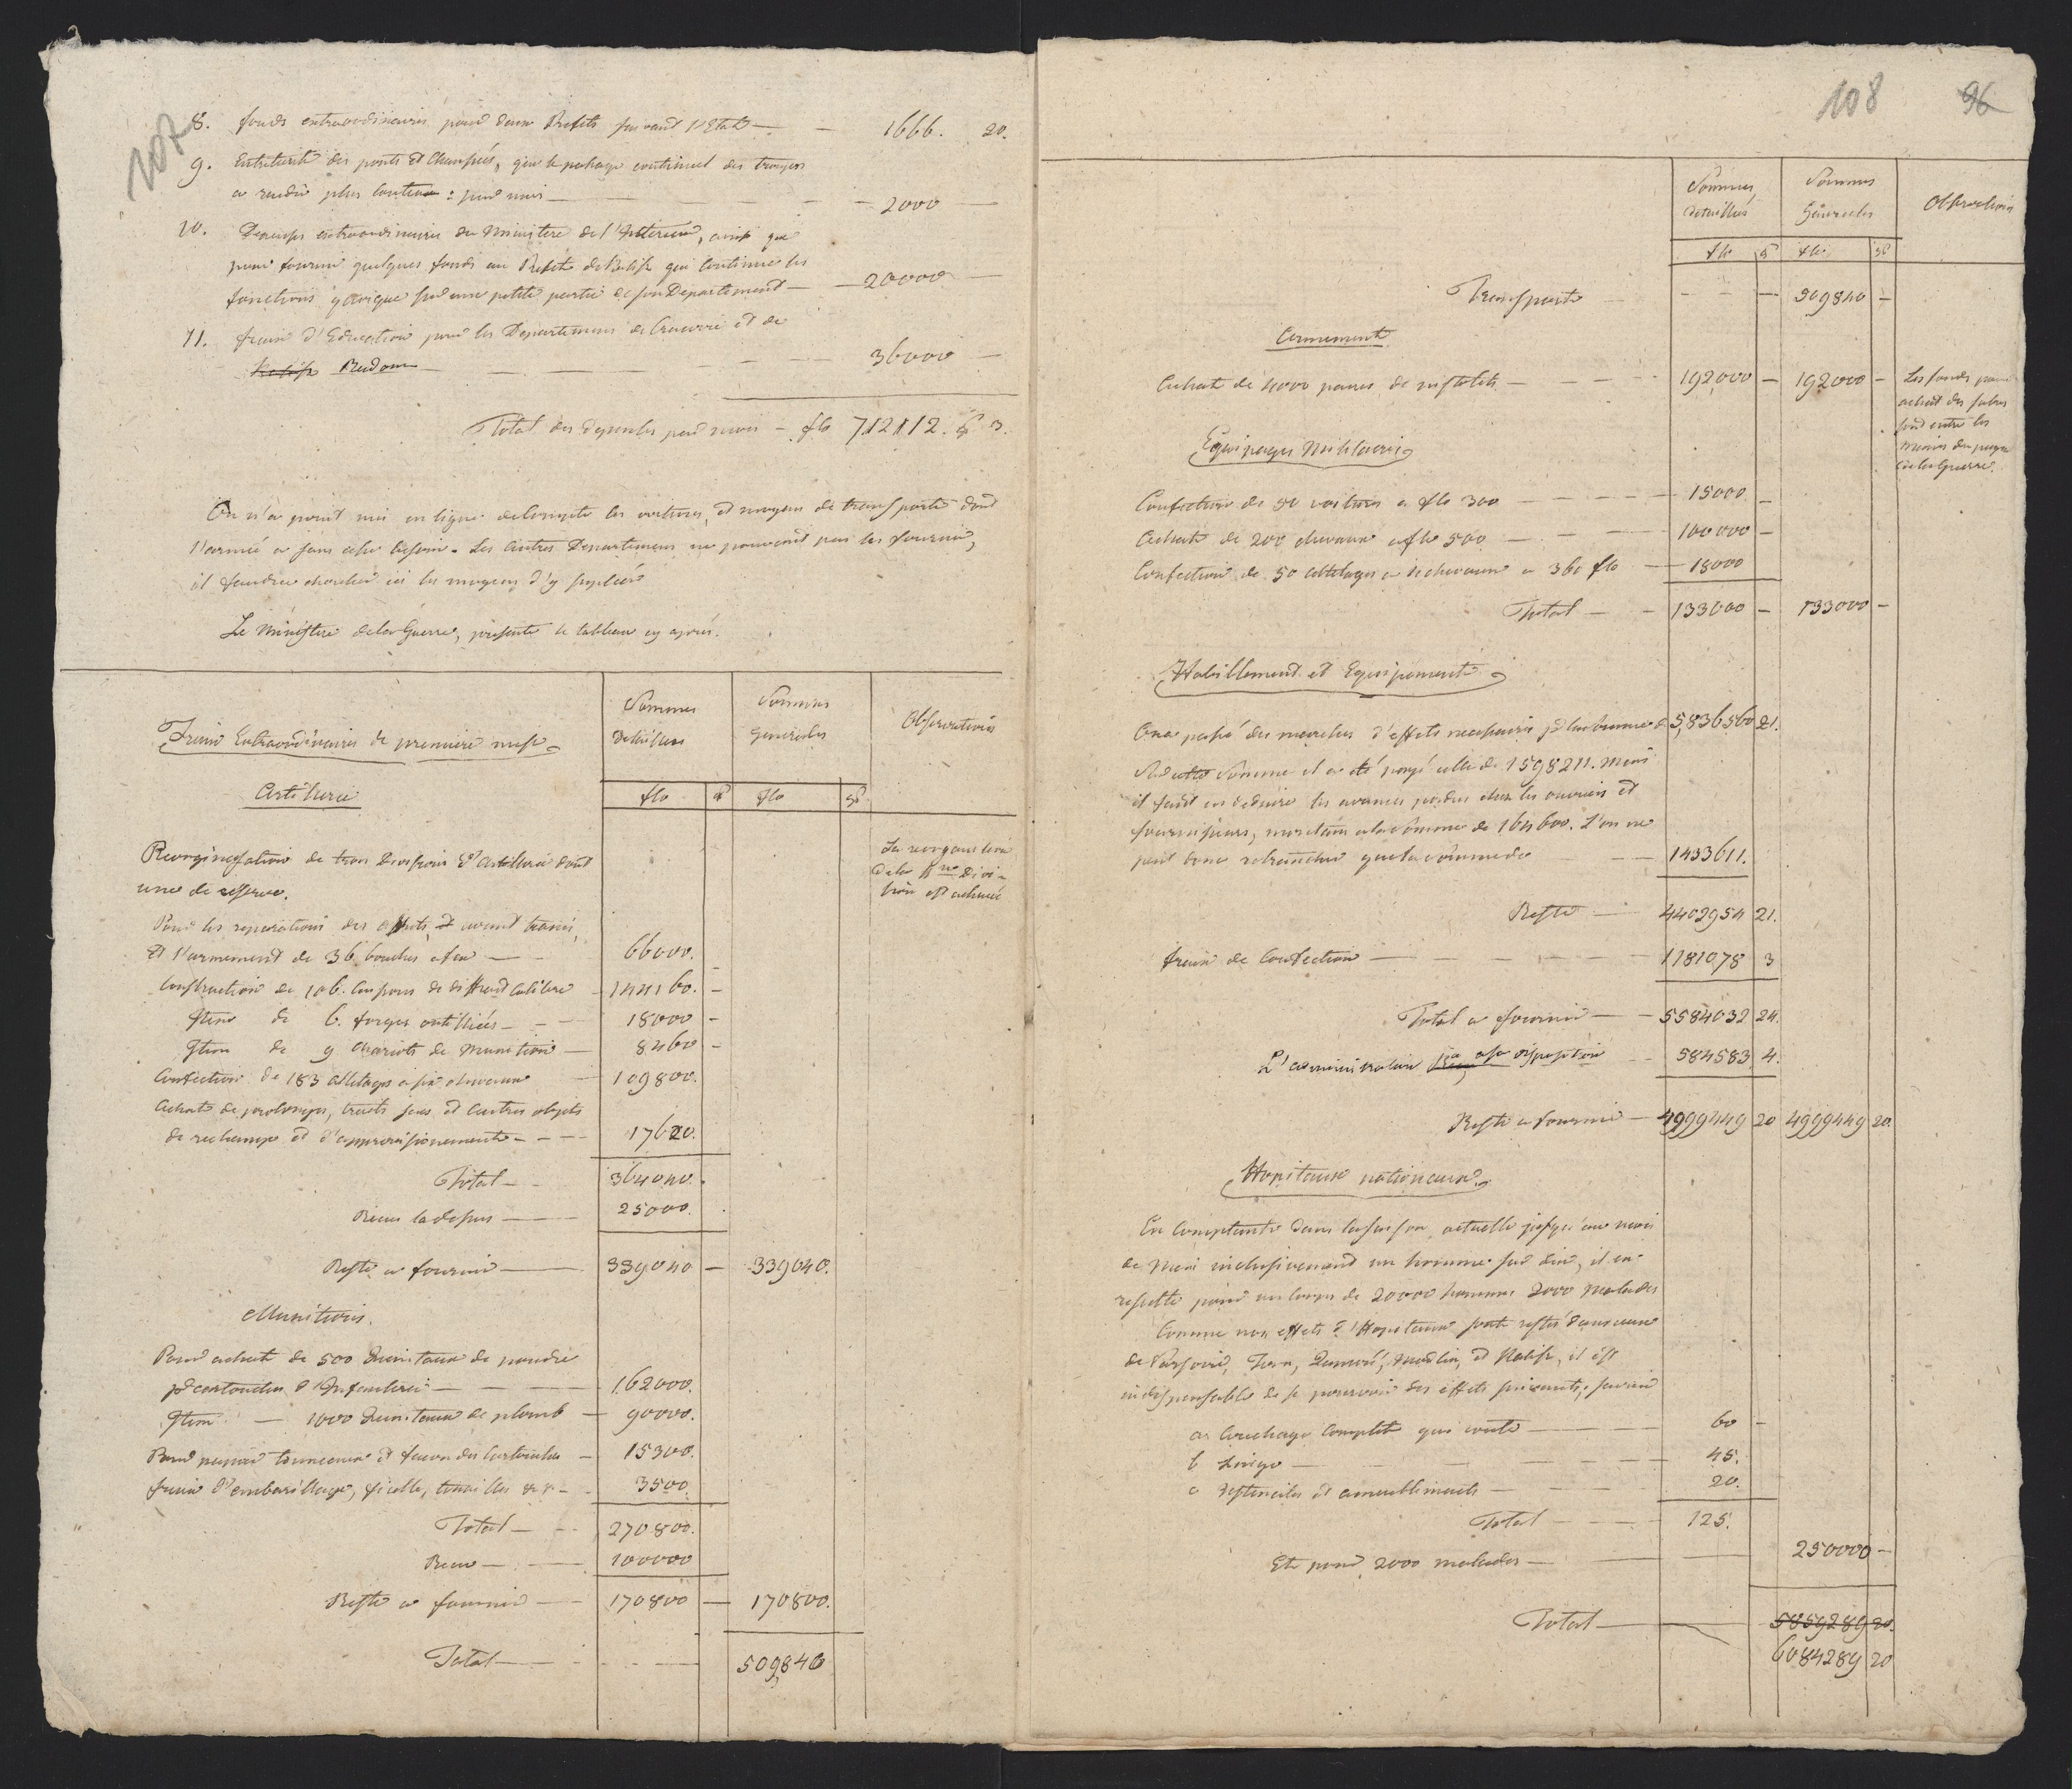 107
8. fonds extraordinaires pour deux Prefets suivant l'Etat — 1666. 20.
9. Entretient des ponts et Chaussées, que le passage continuel des troupes
a rendu plus couteux : pour mois — 2000 —
10. Depenses extraordinaires du Ministere de l'Interieur, ainsi que
pour fournir quelques fonds au Prefet de Kalisz qui continue ses
fonctions quoique sur une petite partie de son Departement — 20000 —
11. fraix d'Education pour les Departemens de Cracovie et de
Kalisz Radom — 36000 —
Total des depenses pour mois — flo 712112. gr 3.
On n'a point mis en ligne de Compte les voitures, et moyens de transports dont
l'armée a sans cesse besoin. Les autres Departemens ne pouvant pas les fournir,
il faudra chercher ici les moyens d'y suppléer
Le Ministre de la Guerre, presente le tableau cy après.
Fraix Extraordinaires de premiere mise
Sommes detaillées
Sommes Generales
Observations
Artillerie
flo gr flo gr
Reorganisation de trois Divisions d'artillerie dont
une de reserve.
La reorganisation
de la 1re Divi-
sion est achevée
Pour les reparations des affuts, et avant trains,
Et l'armement de 36 bouches a feu — 66000. —
Construction de 106. Caissons de different Calibre — 144160. —
Item de 6. forges outillées — 18000 —
Item de 9 chariots de munition — 8460 —
Confection de 183 attelages a six chevaux — 109800.
Achat de prolonges, traits seaux et autres objets
de rechange et d'approvisionnement — 17620.
Total — 364040.
Recus la dessus — 25000.
Reste a fournir — 339040 — 339040.
Munitions.
Pour achat de 500 Quintaux de poudre
pr cartouches d'Infanterie — 162000.
Item — 1000 Quintaux de plomb — 90000.
Pour papier tonneaux et facon des Cartouches — 15300.
fraix d'embarillage, ficelle, tenailles &&— 3500.
Total — 270800.
Recu — 100000
Reste a fournir — 170800 — 170800.
Total — 509840
108 96
Sommes detaillées
Sommes Générales
Observations
flo gr flo gr
Transport — 509840 —
Armement
Achat de 4000 paires de pistolets — 192000 — 192000 —
Les fonds pour
achat des sabres
sont entre les
mains du payeur
de la Guerre.
Equipages Militaires
Confection de 50 voitures a flo 300 — 15000 —
Achat de 200 chevaux a flo 500 — 100000 —
Confection de 50 attelages a 4 chevaux a 360 flo — 18000
Total — 133000 — 133000 —
Habillement et Equipement
On a passé des marchés d'effets necessaires pr la somme de 5,836560 21.
Sur cette somme il a été payé celle de 1598211. mais
il faut en deduire les avances perdues chez les ouvriers et
fournisseurs, montant a la somme de 164600. L'on ne
peut donc retrancher que la somme de — 1433611.
Reste — 4402954 21.
fraix de Confection — 1181078 3
Total a fournir — 5584032 24.
L'administration a a sa disposition — 584583 4.
Reste a fournir — 4999449 20 4999449 20.
Hopitaux nationaux.
En Comptant dans la saison actuelle jusqu'au mois
de Mai inclusivement un homme sur dix, il en
resulte pour un Corps de 20000 hommes 2000 malades
Comme nos effets d'Hopitaux sont restés dans ceux
de Varsovie, Thorn, Zamość, Modlin, et Kalisz, il est
indispensable de se pourvoir des effets suivants, savoir
a Couchage Complet qui coute — 60 —
b Linge — 45.
c Ustenciles et ameublements — 20.
Total — 125.
Et pour 2000 malades — 250000 —
Total — 5859289 20.
6084289 20